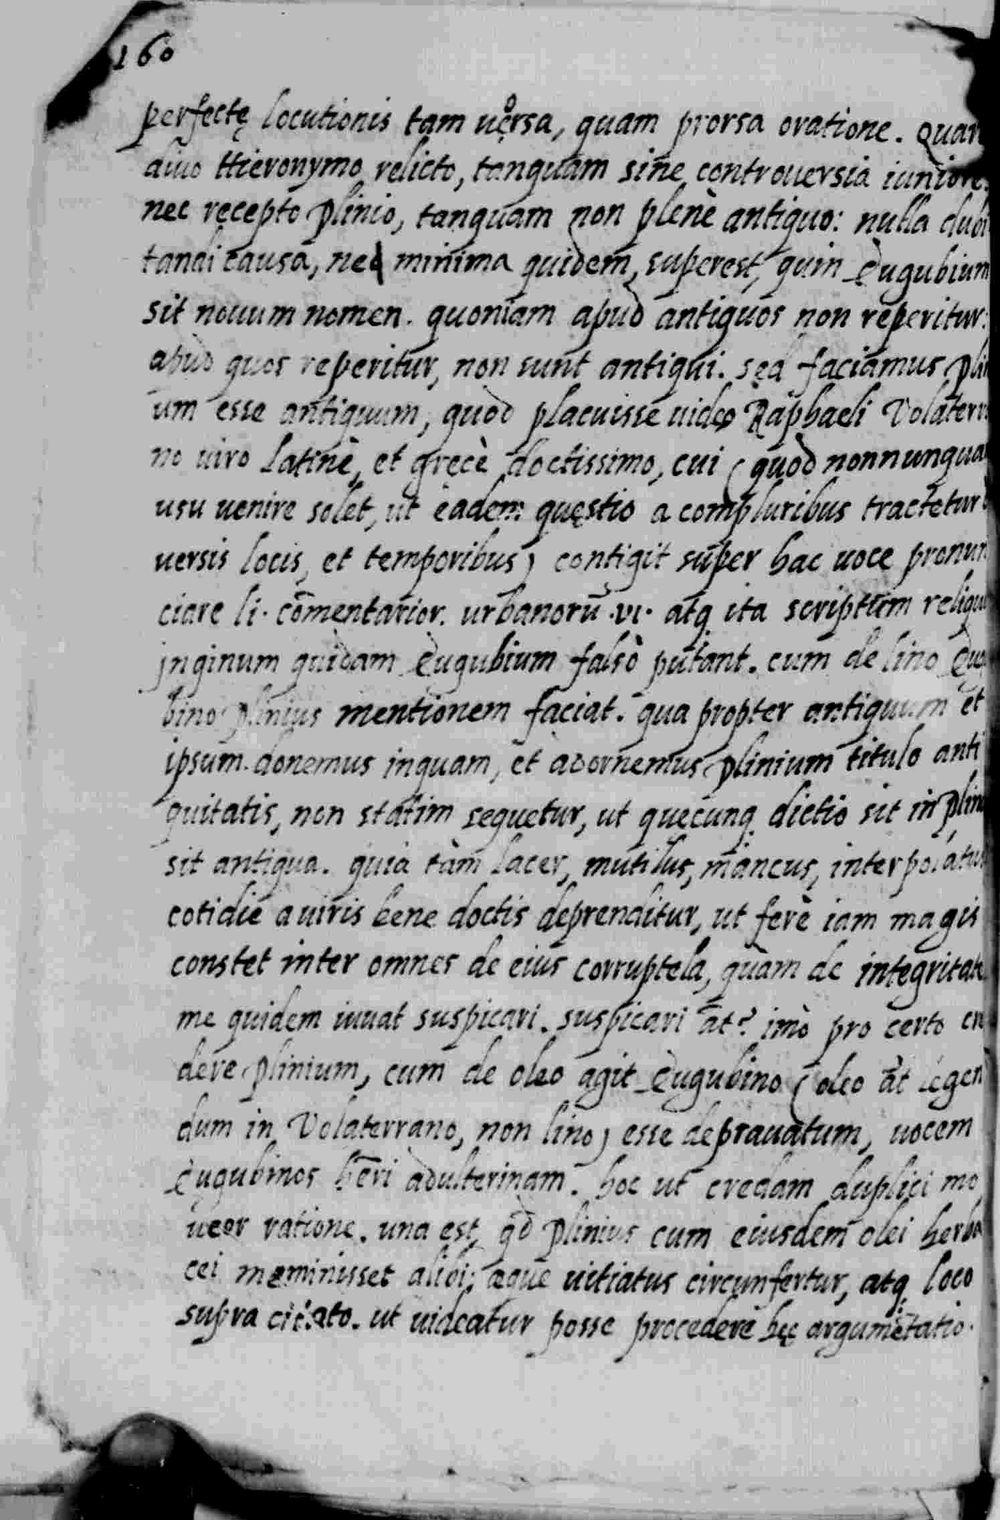 160
perfectę locutionis tam uersa, quam prorsa oratione. Quar
diuo Hieronymo relicto, tanquam sine controuersia iuniore.
nec recepto Plinio, tanquam non plenè antiquo: nulla dubi
tandi causa, nec minima quidem, superest, quin Eugubium
sit nouum nomen. quoniam apud antiquos non reperitur:
apud quos reperitur, non sunt antiqui. sed faciamus Plin
um esse antiquum, quod placuisse uideo Raphaeli Volaterr
no uiro Latinè, et grecè doctissimo, cui (quod nonnunqua
usu uenire solet, ut eadem questio a compluribus tractetur
uersis locis, et temporibus) contigit super hac uoce pronun
ciare li. cōmentarior. urbanorū .vi. atq ita scriptum reliqu
inginum quidam Eugubium falsò putant. cum de lino Eugu
bino Plinius mentionem faciat. qua propter antiquum et
ipsum. donemus inquam, et adornemus Plinium titulo anti
quitatis, non statim sequetur, ut quecunq dictio sit in Plin
sit antiqua. quia tàm lacer, mutilus, mancus, interpolatus
cotidie a uiris bene doctis deprenditur, ut ferè iam magis
constet inter omnes de eius corruptela, quàm de integritate
me quidem iuuat suspicari. suspicari āt? imò pro certo cre
dere Plinium, cum de oleo agit Eugubino (oleo āt legen
dum in Volaterrano, non lino) esse deprauatum, uocem
Eugubinos hēri adulterinam. hoc ut credam duplici mo
ueor ratione. una est, qd Plinius cum eiusdem olei herba
cei meminisset alibi; æque uitiatus circunfertur, atq loco
supra citato. ut uideatur posse procedere hęc argumētatio.